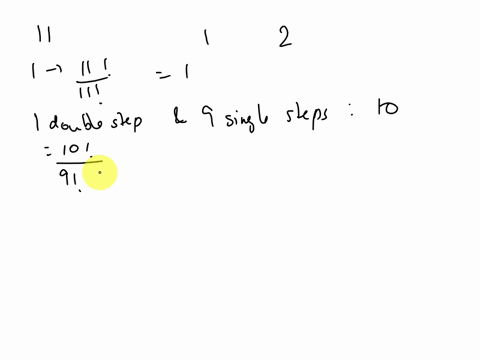 11 1 2
1 → 11! / 11! = 1
1 double step & 9 single steps : 10
= 10! / 9!